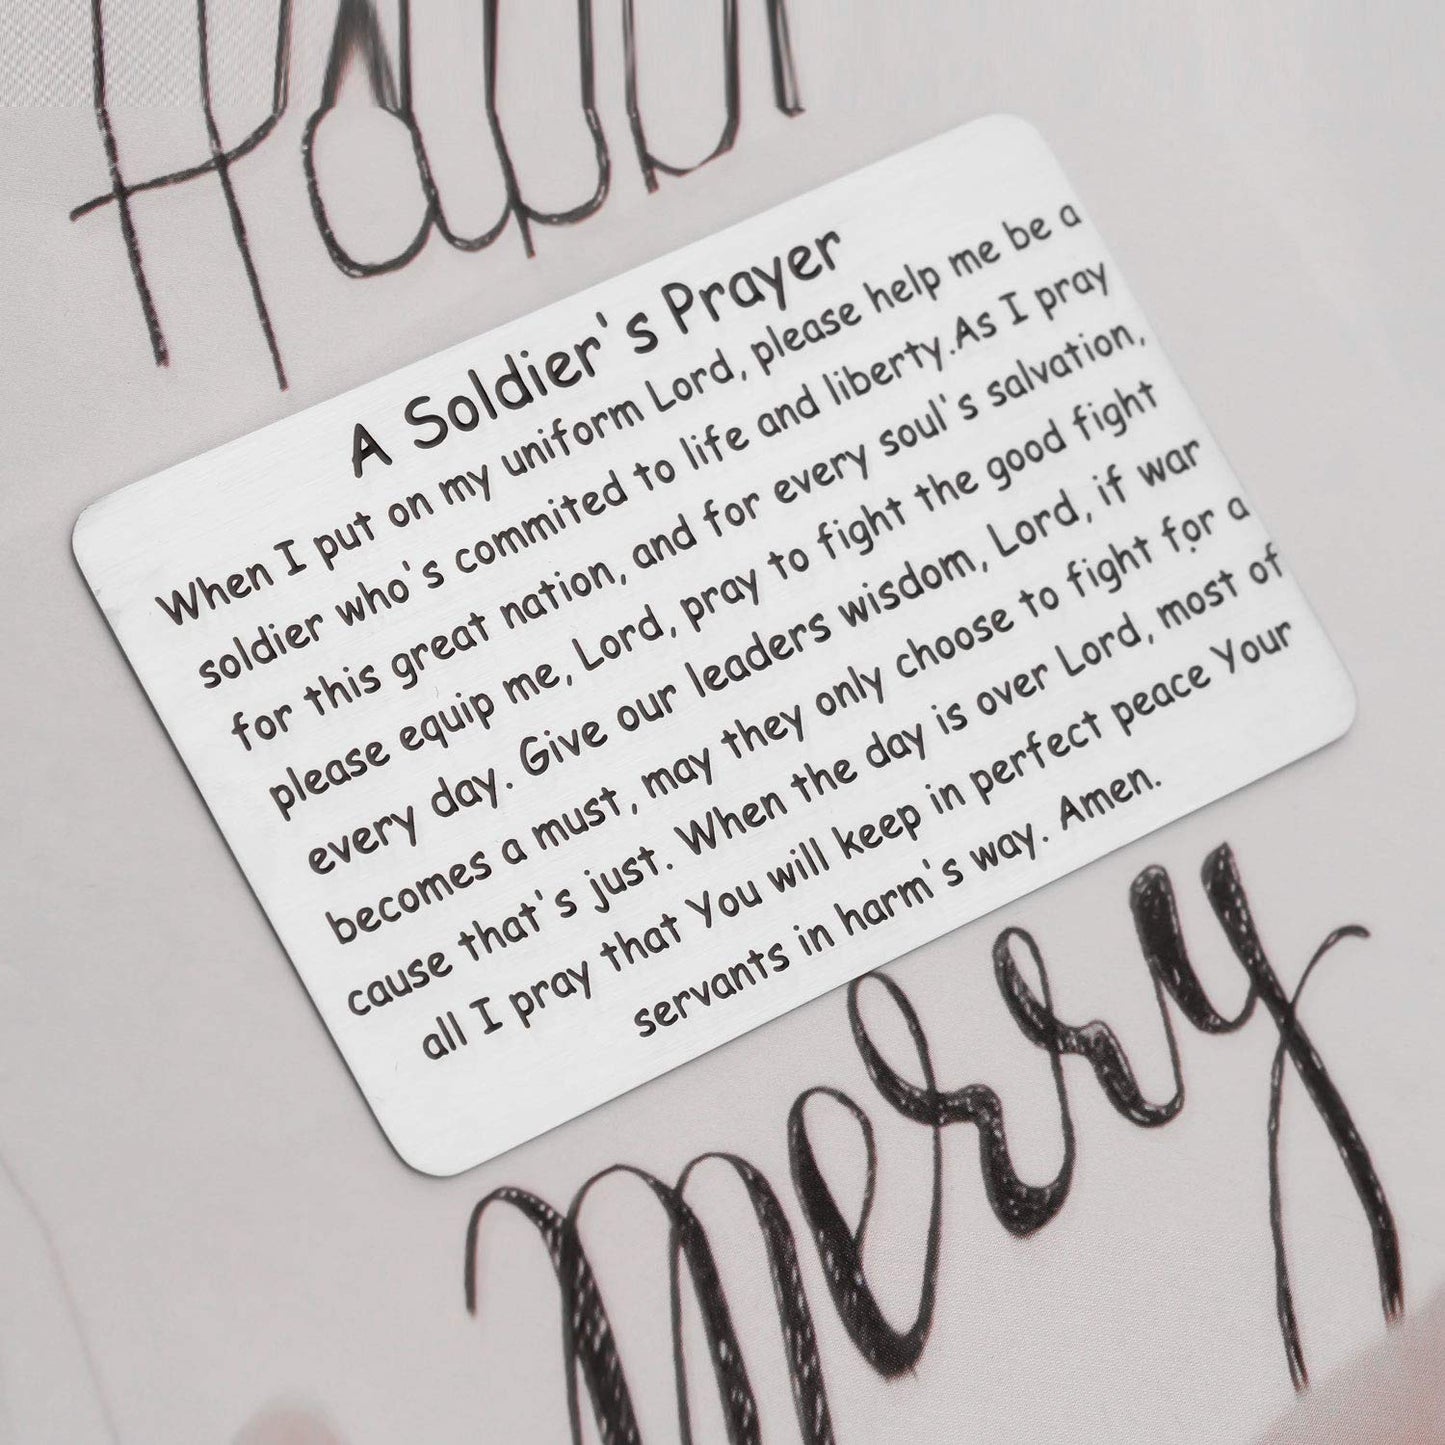 Happy
A Soldier's Prayer
When I put on my uniform Lord, please help me be a
soldier who's commited to life and liberty.As I pray
for this great nation, and for every soul's salvation,
please equip me, Lord, pray to fight the good fight
every day. Give our leaders wisdom, Lord, if war
becomes a must, may they only choose to fight for a
cause that's just. When the day is over Lord, most of
all I pray that You will keep in perfect peace Your
servants in harm's way. Amen.
merry